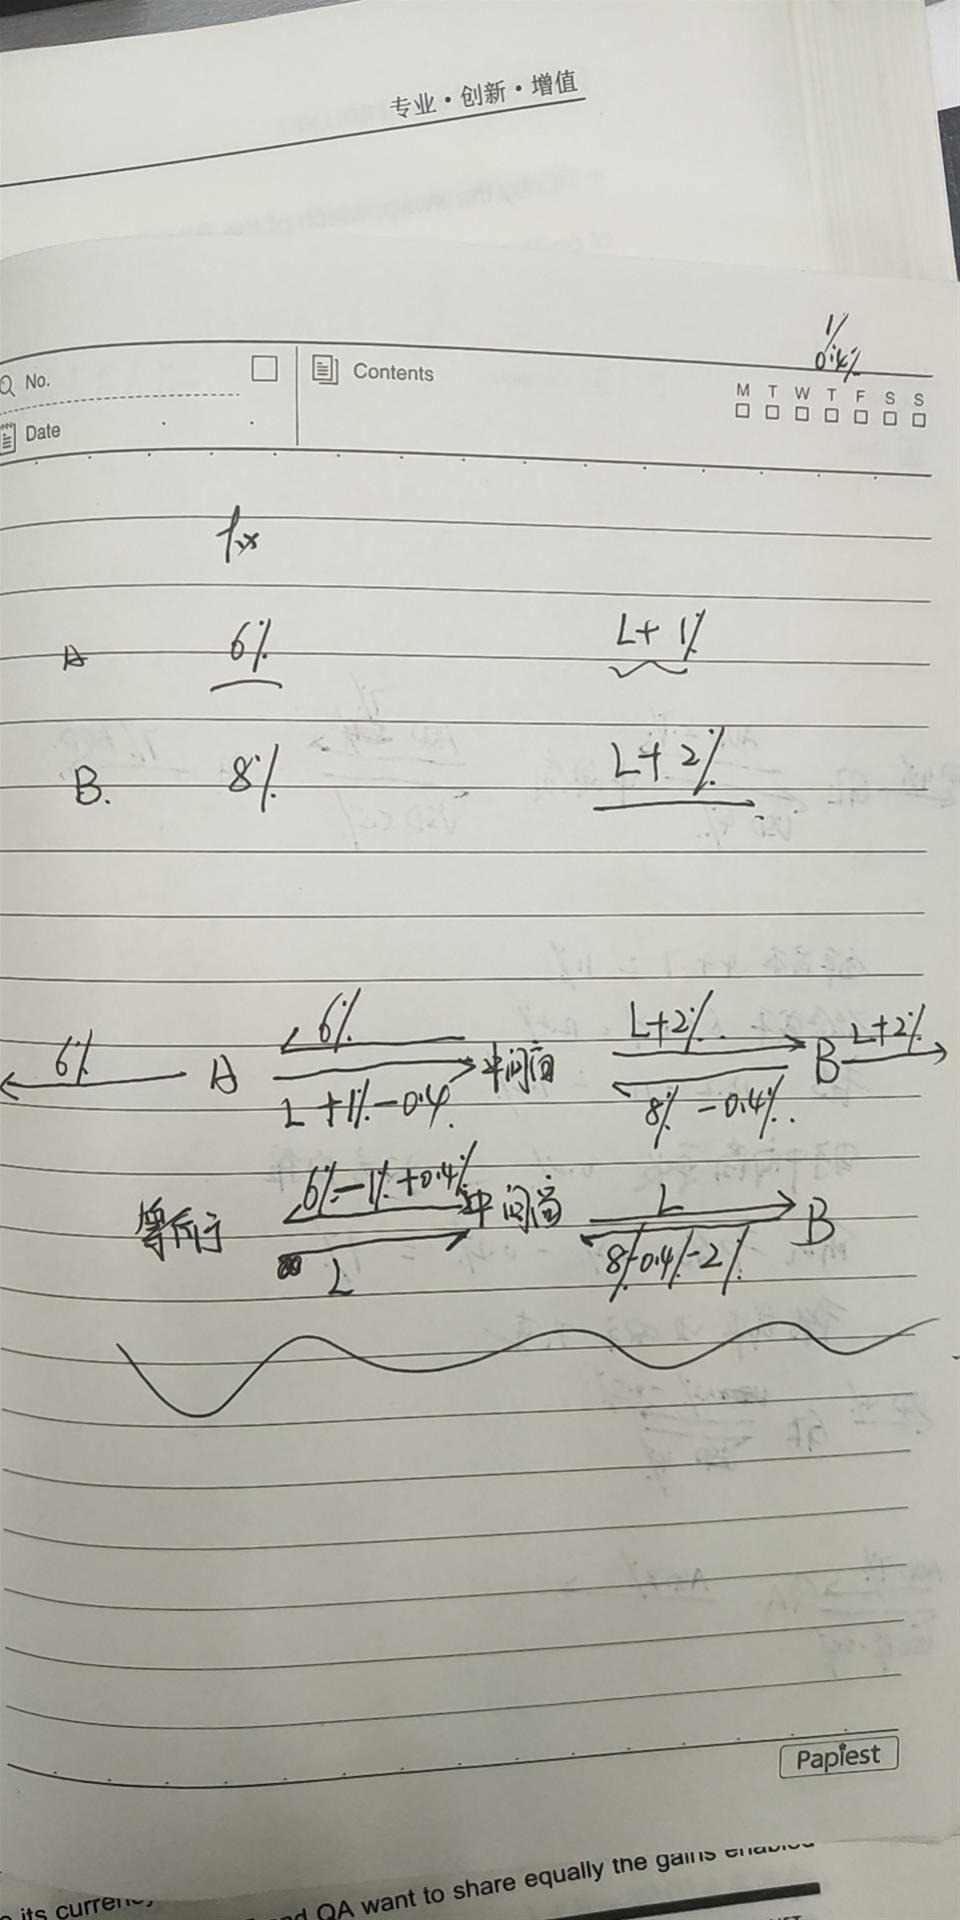 专业·创新·增值
1%
0.4%
No.
Contents
M T W T F S S
Date
fx
A 6% L+1%
B. 8% L+2%
6% A 6% 中间商 L+2% B L+2%
L+1%-0.4% 8%-0.4%.
6%-1%+0.4% 中间商 L B
L 8%-0.4%-2%
Papiest
its currency
QA want to share equally the gains enabled